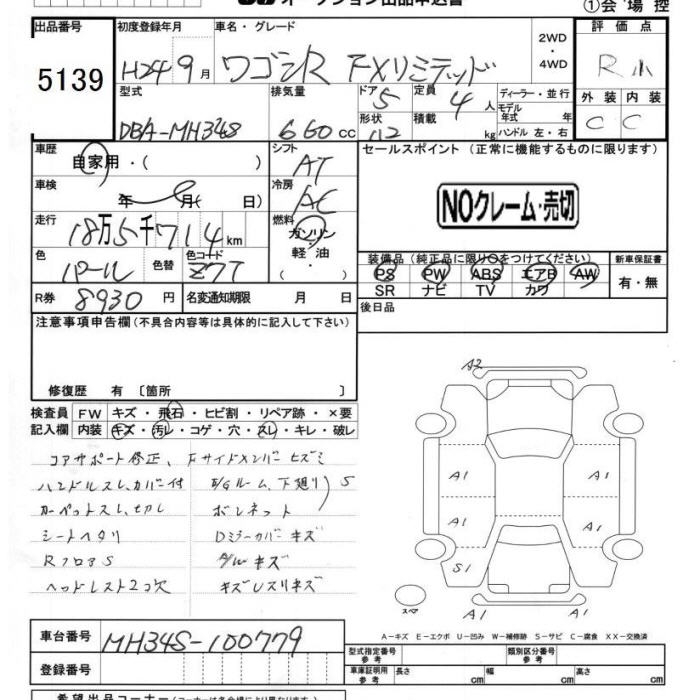 オークション出品申込書
①会場控
出品番号 5139
初度登録年月 H24 9月
車名・グレード ワゴンR FXリミテッド
2WD・4WD
評価点 R
型式 DBA-MH34S
排気量 660cc
ドア 5
形状
定員 4人
積載 kg
ディーラー・並行
モデル年式 年
ハンドル 左・右
外装 C
内装 C
車歴 自家用・( )
シフト AT
セールスポイント (正常に機能するものに限ります)
車検 年 月( 日)
冷房 AC
NOクレーム・売切
走行 18万5千714km
燃料 ガソリン・軽油・( )
色 パール
色替
色コード Z7T
装備品 (純正品に限り○をつけてください)
新車保証書 有・無
PS PW ABS エアB AW
SR ナビ TV カワ
R券 8930円
名変通知期限 月 日
後日品
注意事項申告欄 (不具合内容等は具体的に記入して下さい)
修復歴 有 〔箇所 〕
検査員記入欄
FW キズ・飛石・ヒビ割・リペア跡・×要
内装 キズ・汚レ・コゲ・穴・スレ・キレ・破レ
コアサポート修正、Fサイドメンバーヒズミ
ハンドルスレ、カバー付 E/Gルーム、下廻り S
カーペットスレ、切レ ボンネット
シートヘタリ Dミラーカバーキズ
RフロアS A/Wキズ
ヘッドレスト2コ欠 キズレスリキズ
A2
A1 A1
A1 A1
S1
スペア
A-キズ E-エクボ U-凹み W-補修跡 S-サビ C-腐食 XX-交換済
車台番号 MH34S-100779
登録番号
型式指定番号 参考
類別区分番号 参考
車庫証明用 参考 長さ cm 幅 cm 高さ cm
希望出品コーナー